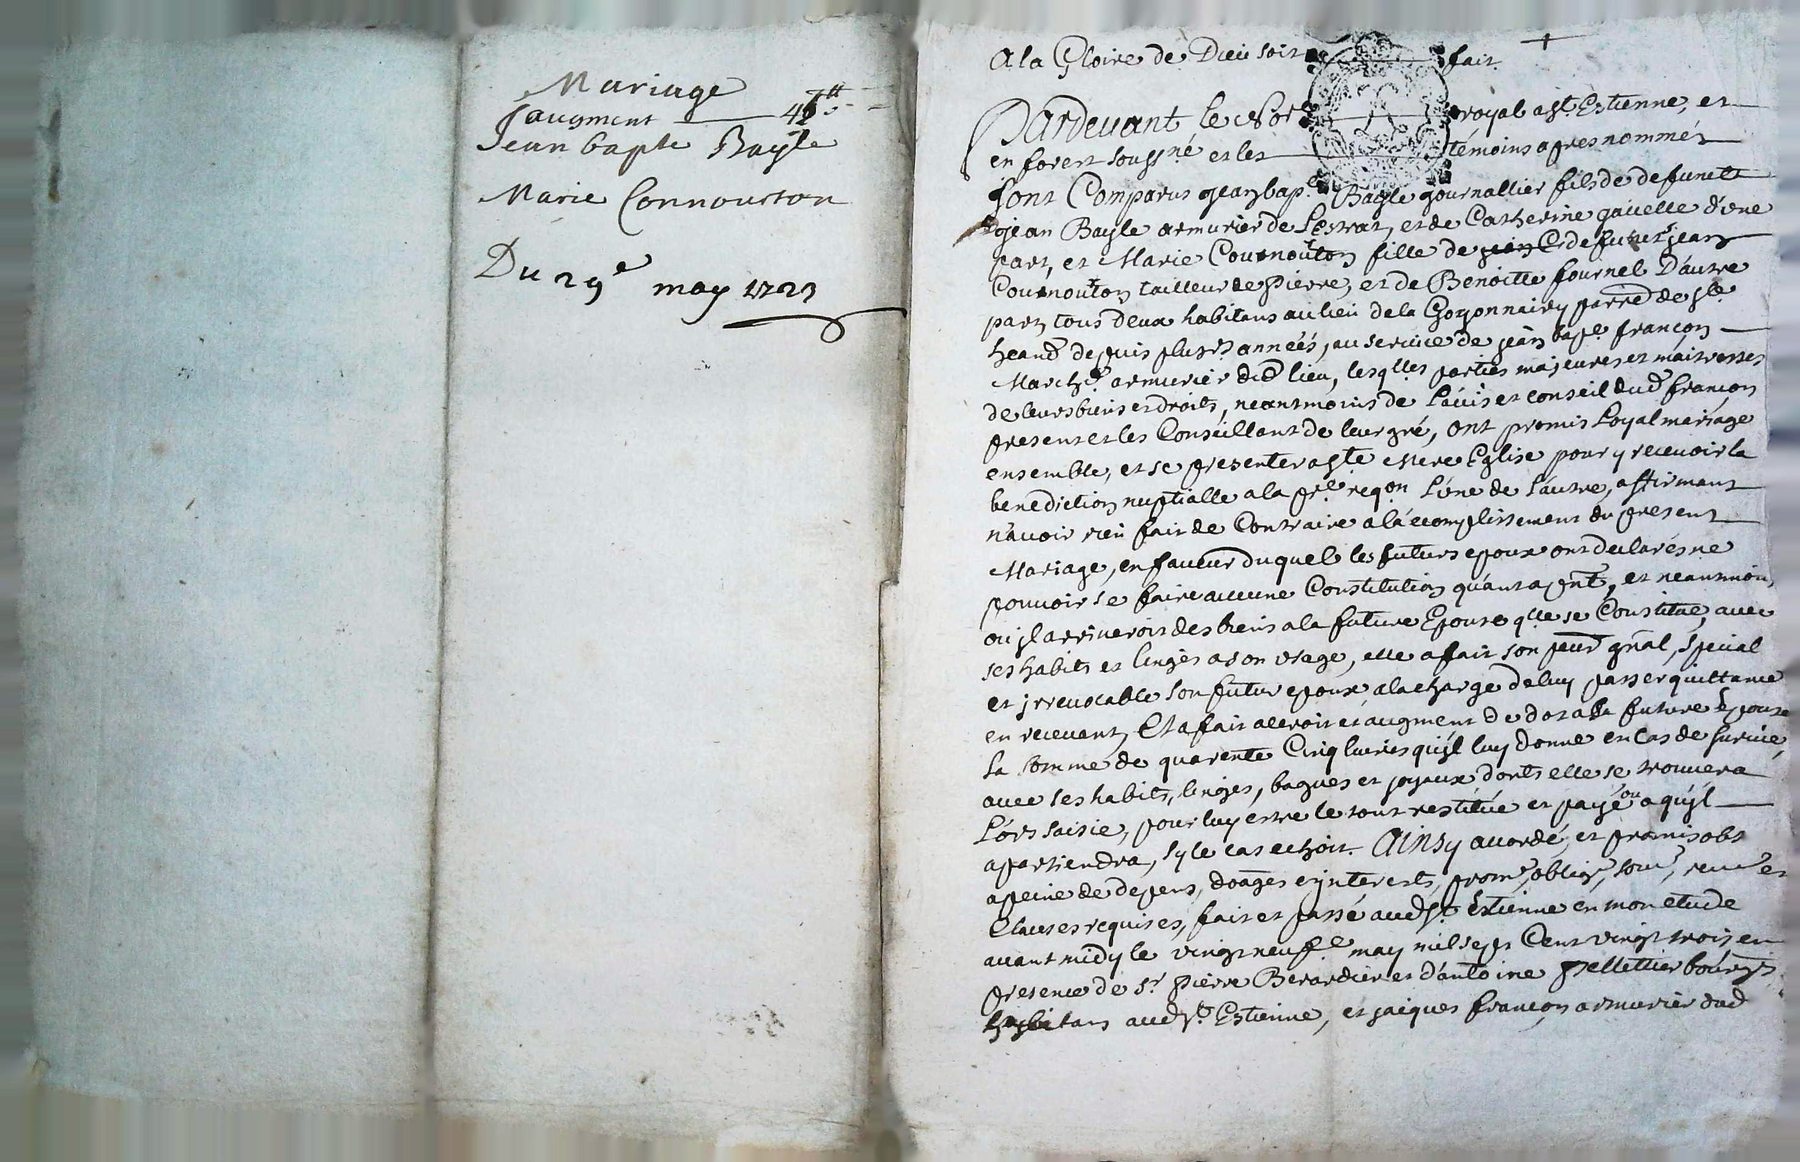 Mariage
augment 45ᵗᵗ
Jean bapte Bayle
Marie Connourton
Du 29ᵉ may 1723
A la Gloire de Dieu soit fait
Pardevant le Noʳᵉ royal a Sᵗ Estienne, et
en forest soussⁿᵉ et les témoins apres nommés
sont Comparus jean bapᵗᵉ Bayle journallier fils de defunct
jean Bayle armurier de Lestrat, et de Catherine gaielle d'une
part, et Marie Cournouton fille de defunct jean
Cournouton tailleur de Pierre, et de Benoitte fournel D'autre
part, tous deux habitans au lieu de la Goyonnairy parrᵉ de Sᵗ
heand depuis plusʳˢ années, au service de jean bapᵗᵉ françon
Marchᵈ armurier dud lieu, lesqlles parties majeures et maitresses
de leurs biens et droits, neantmoins de L'avis et conseil dud françon
present et les Conseillant de leur gré, ont promis Loyal mariage
ensemble, et se presenter a sᵗᵉ Mere Eglise pour y recevoir la
benediction nuptialle a la pʳᵉ reqon L'une de L'autre, affirmant
n'avoir rien fait de Contraire a l'acomplissement du present
Mariage, en faveur duquel les futurs epoux ont declarés ne
pouvoir se faire aucune Constitution quant apnt, et neantmoin,
ou jl arriverois des biens a la future Epouse qlle se Constitue, avec
ses habits et linges a son usage, elle a fait son pcur gnal, special
et jrrevocable son futur epoux a la charge de luy passer quittance
en recevant, Et a fait accroit et augment de dot a la future Epouse
La somme de quarente Cinq livres qu'jl luy donne en Cas de survie,
avec ses habits, linges, bagues et joyaux dont elle se trouvera
Lors saisie, pour luy estre le tout restitué et payé ou a qu'jl
apartiendra, sy le cas echoit. Ainsy accordé, et promis obs
a peine de depens, doages et jnterests, promᵉ, obligᵉ, soumᵉ, renᵉ et
Clauses requises, fait et passé aud Sᵗ Estienne en mon etude
avant midy le vingt neufᵉ may mil sept Cent vingt trois en
presence de sʳ Pierre Berardier et d'antoine pellettier bourgˢ
habitans aud Sᵗ Estienne, et jaiques françon armurier dud